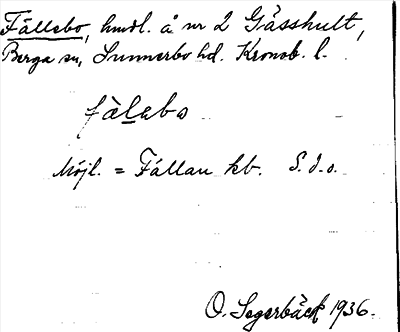 Fällebo, hmdl. å nr 2 Gässhult,
Berga sn, Sunnerbo hd. Kronob. l.
fàlebo
Möjl. = Fällan kb. S. d. o.
O. Segerbäck 1936.